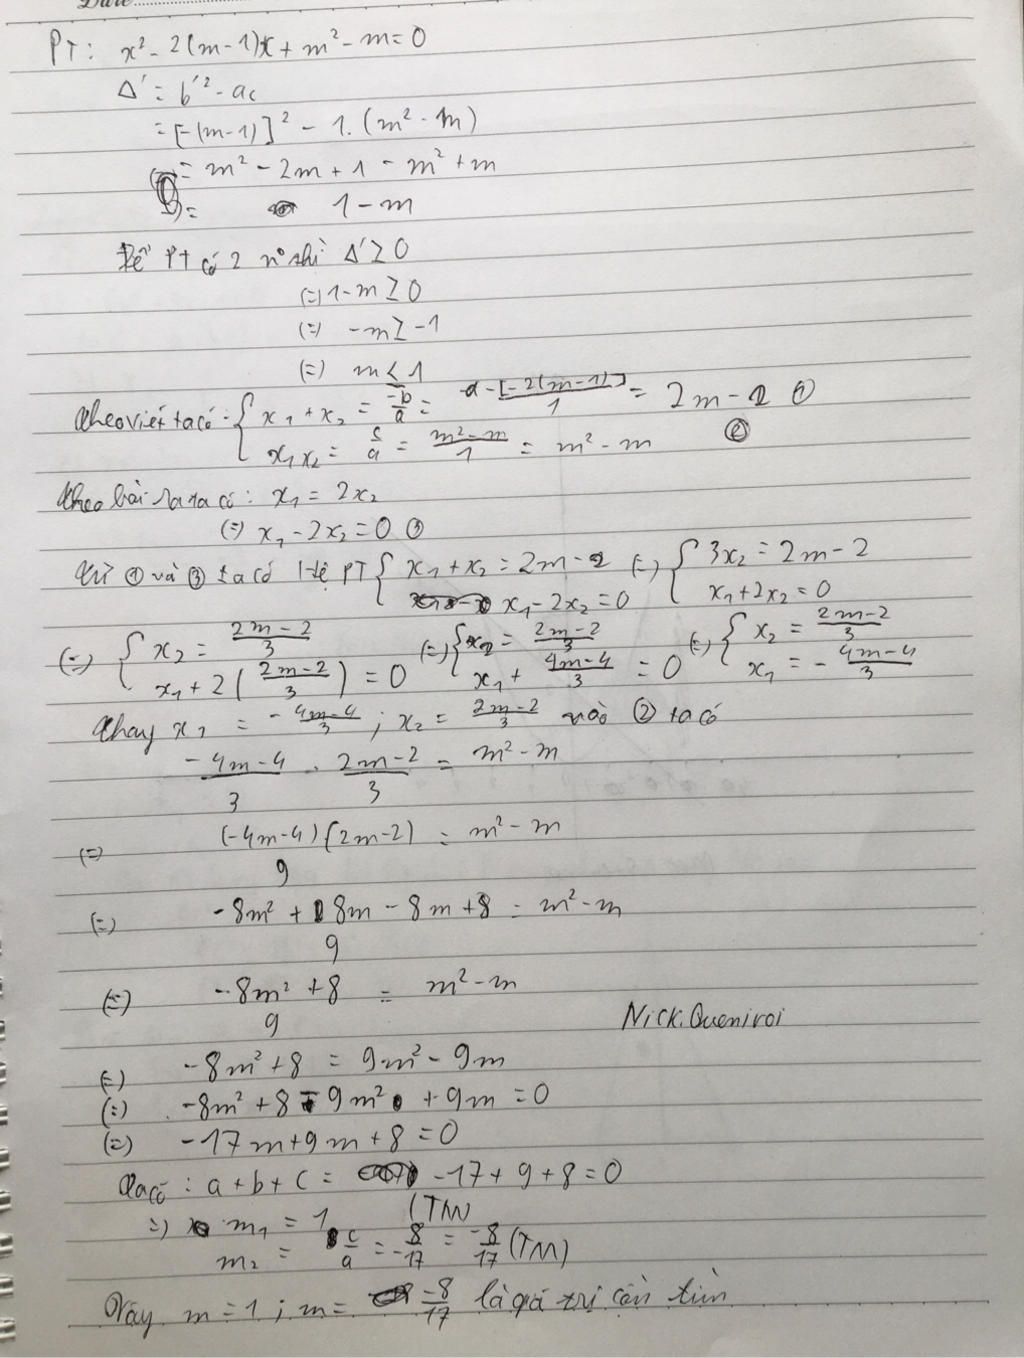 Date
PT: x² - 2(m-1)x + m² - m = 0
Δ' = b'² - ac
= [-(m-1)]² - 1. (m² - m)
= m² - 2m + 1 - m² + m
= 1 - m
Để PT có 2 n° thì Δ' ≥ 0
(=) 1 - m ≥ 0
(=) -m ≥ -1
(=) m ≤ 1
Theo viét ta có: { x₁ + x₂ = -b/a = -[-2(m-1)]/1 = 2m - 2 ①
x₁x₂ = c/a = m² - m/1 = m² - m ②
Theo bài ra ta có: x₁ = 2x₂
(=) x₁ - 2x₂ = 0 ③
Từ ① và ③ ta có Hệ PT { x₁ + x₂ = 2m - 2 (=) { 3x₂ = 2m - 2
x₁ - 2x₂ = 0 x₁ + 2x₂ = 0
(=) { x₂ = 2m - 2/3 (=) { x₂ = 2m - 2/3 (=) { x₂ = 2m - 2/3
x₁ + 2(2m - 2/3) = 0 x₁ + 4m - 4/3 = 0 x₁ = - 4m - 4/3
Thay x₁ = - 4m - 4/3 ; x₂ = 2m - 2/3 vào ② ta có
- 4m - 4/3 . 2m - 2/3 = m² - m
(=) (-4m - 4)(2m - 2)/9 = m² - m
(=) -8m² + 8m - 8m + 8/9 = m² - m
(=) -8m² + 8/9 = m² - m
Nick: Queniroi
(=) -8m² + 8 = 9m² - 9m
(=) -8m² + 8 - 9m² + 9m = 0
(=) -17m + 9m + 8 = 0
Ta có : a + b + c = -17 + 9 + 8 = 0
=) m₁ = 1 (TM)
m₂ = c/a = 8/-17 = -8/17 (TM)
Vậy m = 1 ; m = -8/17 là giá trị cần tìm